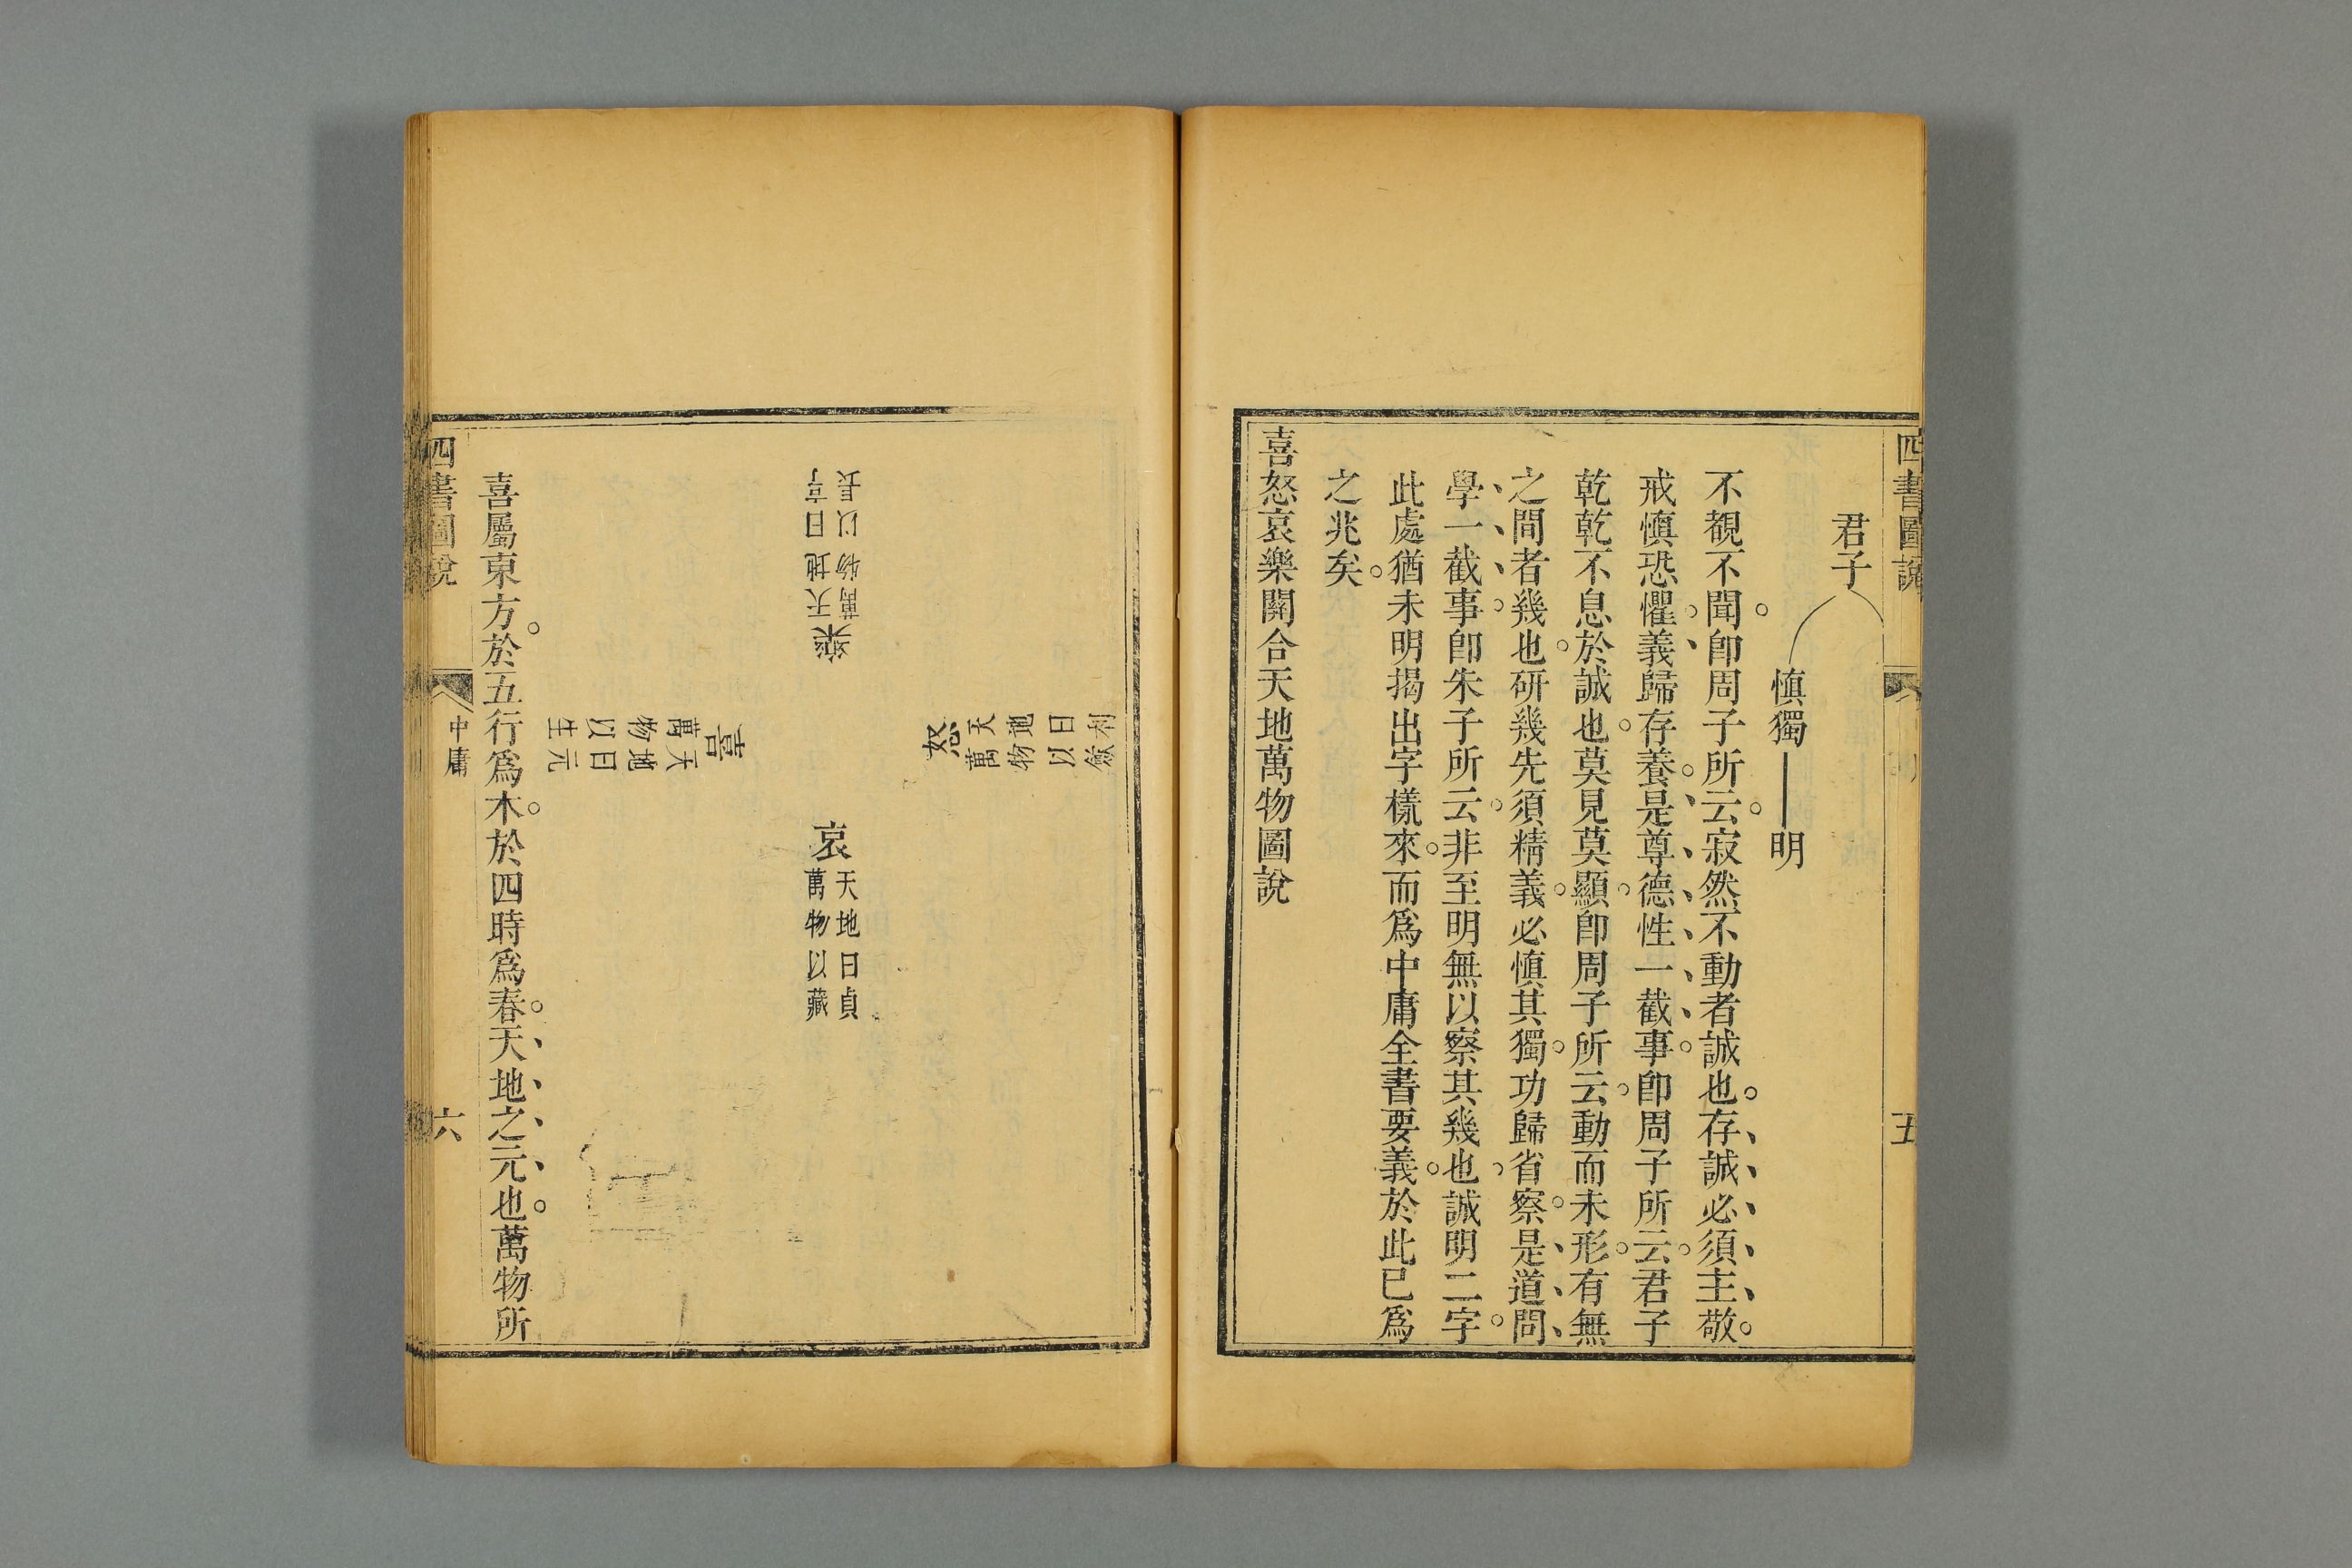 四書圖說
五
君子
慎獨
明
不覩不聞。卽周子所云。寂然不動者誠也。存誠必須主敬。
戒慎恐懼。義歸存養。是尊德性一截事。卽周子所云。君子
乾乾不息於誠也。莫見莫顯。卽周子所云。動而未形。有無
之間者幾也。研幾先須精義。必慎其獨。功歸省察。是道問
學一截事。卽朱子所云。非至明無以察其幾也。誠明二字。
此處猶未明揭出字樣來。而爲中庸全書要義。於此已爲
之兆矣。
喜怒哀樂關合天地萬物圖說
怒
天地曰利
萬物以斂
樂
天地曰亨
萬物以長
哀
天地曰貞
萬物以藏
喜
天地曰元
萬物以生
喜屬東方。於五行爲木。於四時爲春。天地之元也。萬物所
四書圖說
中庸
六